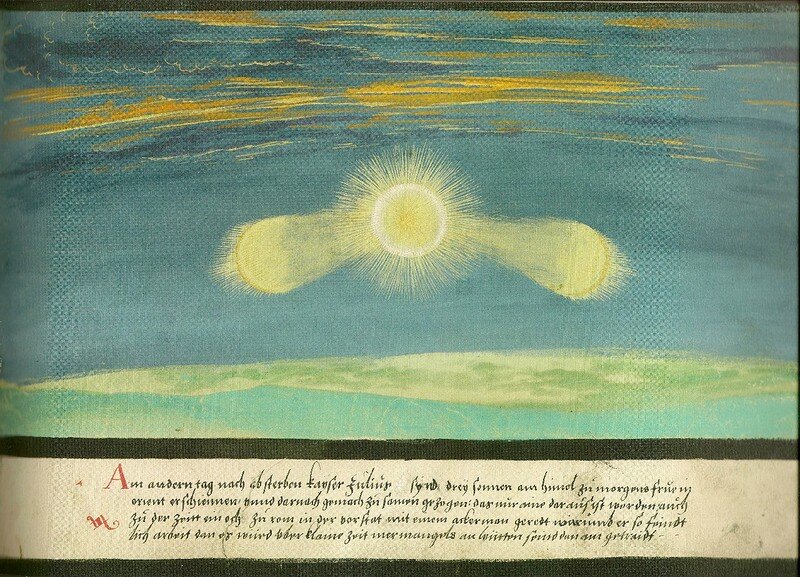 Am andern tag nach absterben kayser Julius sind drey sonnen am himel zu morgens frue in
orient erschinnen, vnnd darnach gemach zu samen gezogen, das nur aine daraus ist worden, auch
zu der Zeitt ein ochs zu rom in der vorstat mit einem ackerman gerett warumb er so
lich arbeit dan es wurd vber klaine zeit mer mangels an leutten dan am getraidt